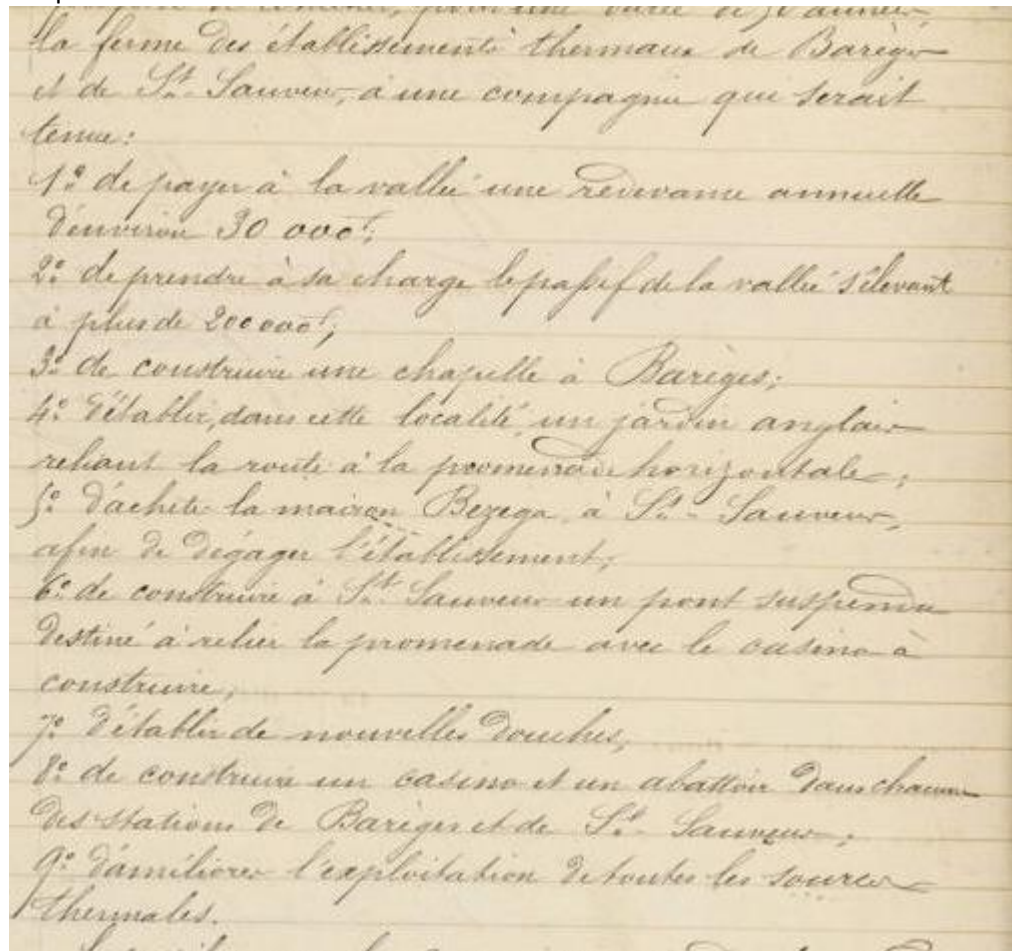 pour une durée de années
la ferme des établissements thermaux de Barèges
et de St. Sauveur, à une compagnie que serait
tenue:
1º de payer à la vallée une redevance annuelle
d'environ 30 000f;
2º de prendre à sa charge le passif de la vallée s'élevant
à plus de 200 000f;
3º de construire une chapelle à Barèges;
4º d'établir, dans cette localité, un jardin anglais
reliant la route à la promenade horizontale;
5º d'acheter la maison Bezega, à St. Sauveur,
afin de dégager l'établissement;
6º de construire à St. Sauveur un pont suspendu
destiné à relier la promenade avec le casino à
construire;
7º d'établir de nouvelles douches;
8º de construire un casino et un abattoir dans chacune
des stations de Barèges et de St. Sauveur;
9º d'améliorer l'exploitation de toutes les sources
thermales.